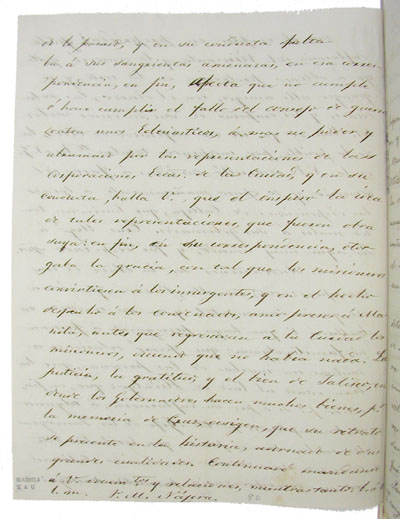 y en su conducta
á sus sangrientas amenazas, en esa corres
pondencia, en fin, que no cumple
ó hace cumplir el fallo del consejo de guerra
contra unos Eclesiasticos, á mas no poder y
abrumado por las representaciones de las
corporaciones Ecas. de la Ciudad, y en su
conducta, halla V. que el inspiró la idea
de tales representaciones que fueron obra
suya: en fin, en su correspondencia, otor
gaba la gracia, con tal que los misioneros
convirtieran á los insurgentes, y en el hecho
despachó á los condenados, á Ma
nila, antes que regresaran a la Ciudad los
misioneros, diciendo que no habia nada. La
justicia, la gratitud y el bien de Jalisco, en
donde los gobernadores hacen muchos bienes, pr.
la memoria de Cruz, exigen, que su retrato
se presente en la historia, adornado de sus
grandes cualidades. Continuaré
á V. y relaciones, mientras tanto
b. m. F. M. Nájera.